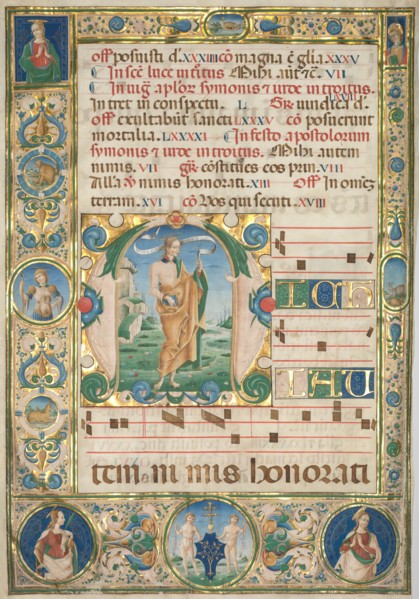 off posuisti d. xxxiiii cō magna ē gl̄ia. xxxv
In scē luce intītus Mihi aut̄ &c̄. VII
In uig. ap̄lor symonis & iude in troitus.
Intret in conspectu. L. Gr̄. uindica d̄. LXXVII
off exultabūt sancti LXXXV cō posuerunt
mortalia. LXXXXI In festo apostolorum
symonis & iude in troitus. Mihi autem
nimis. VII gr̄ cōstitues eos prin. VIII
Alla v̄ nimis honorati. XIII Off In omnez
terram. XVI cō Vos qui secuti. XVIII
M
IGH
IAU
tem ni mis honorati